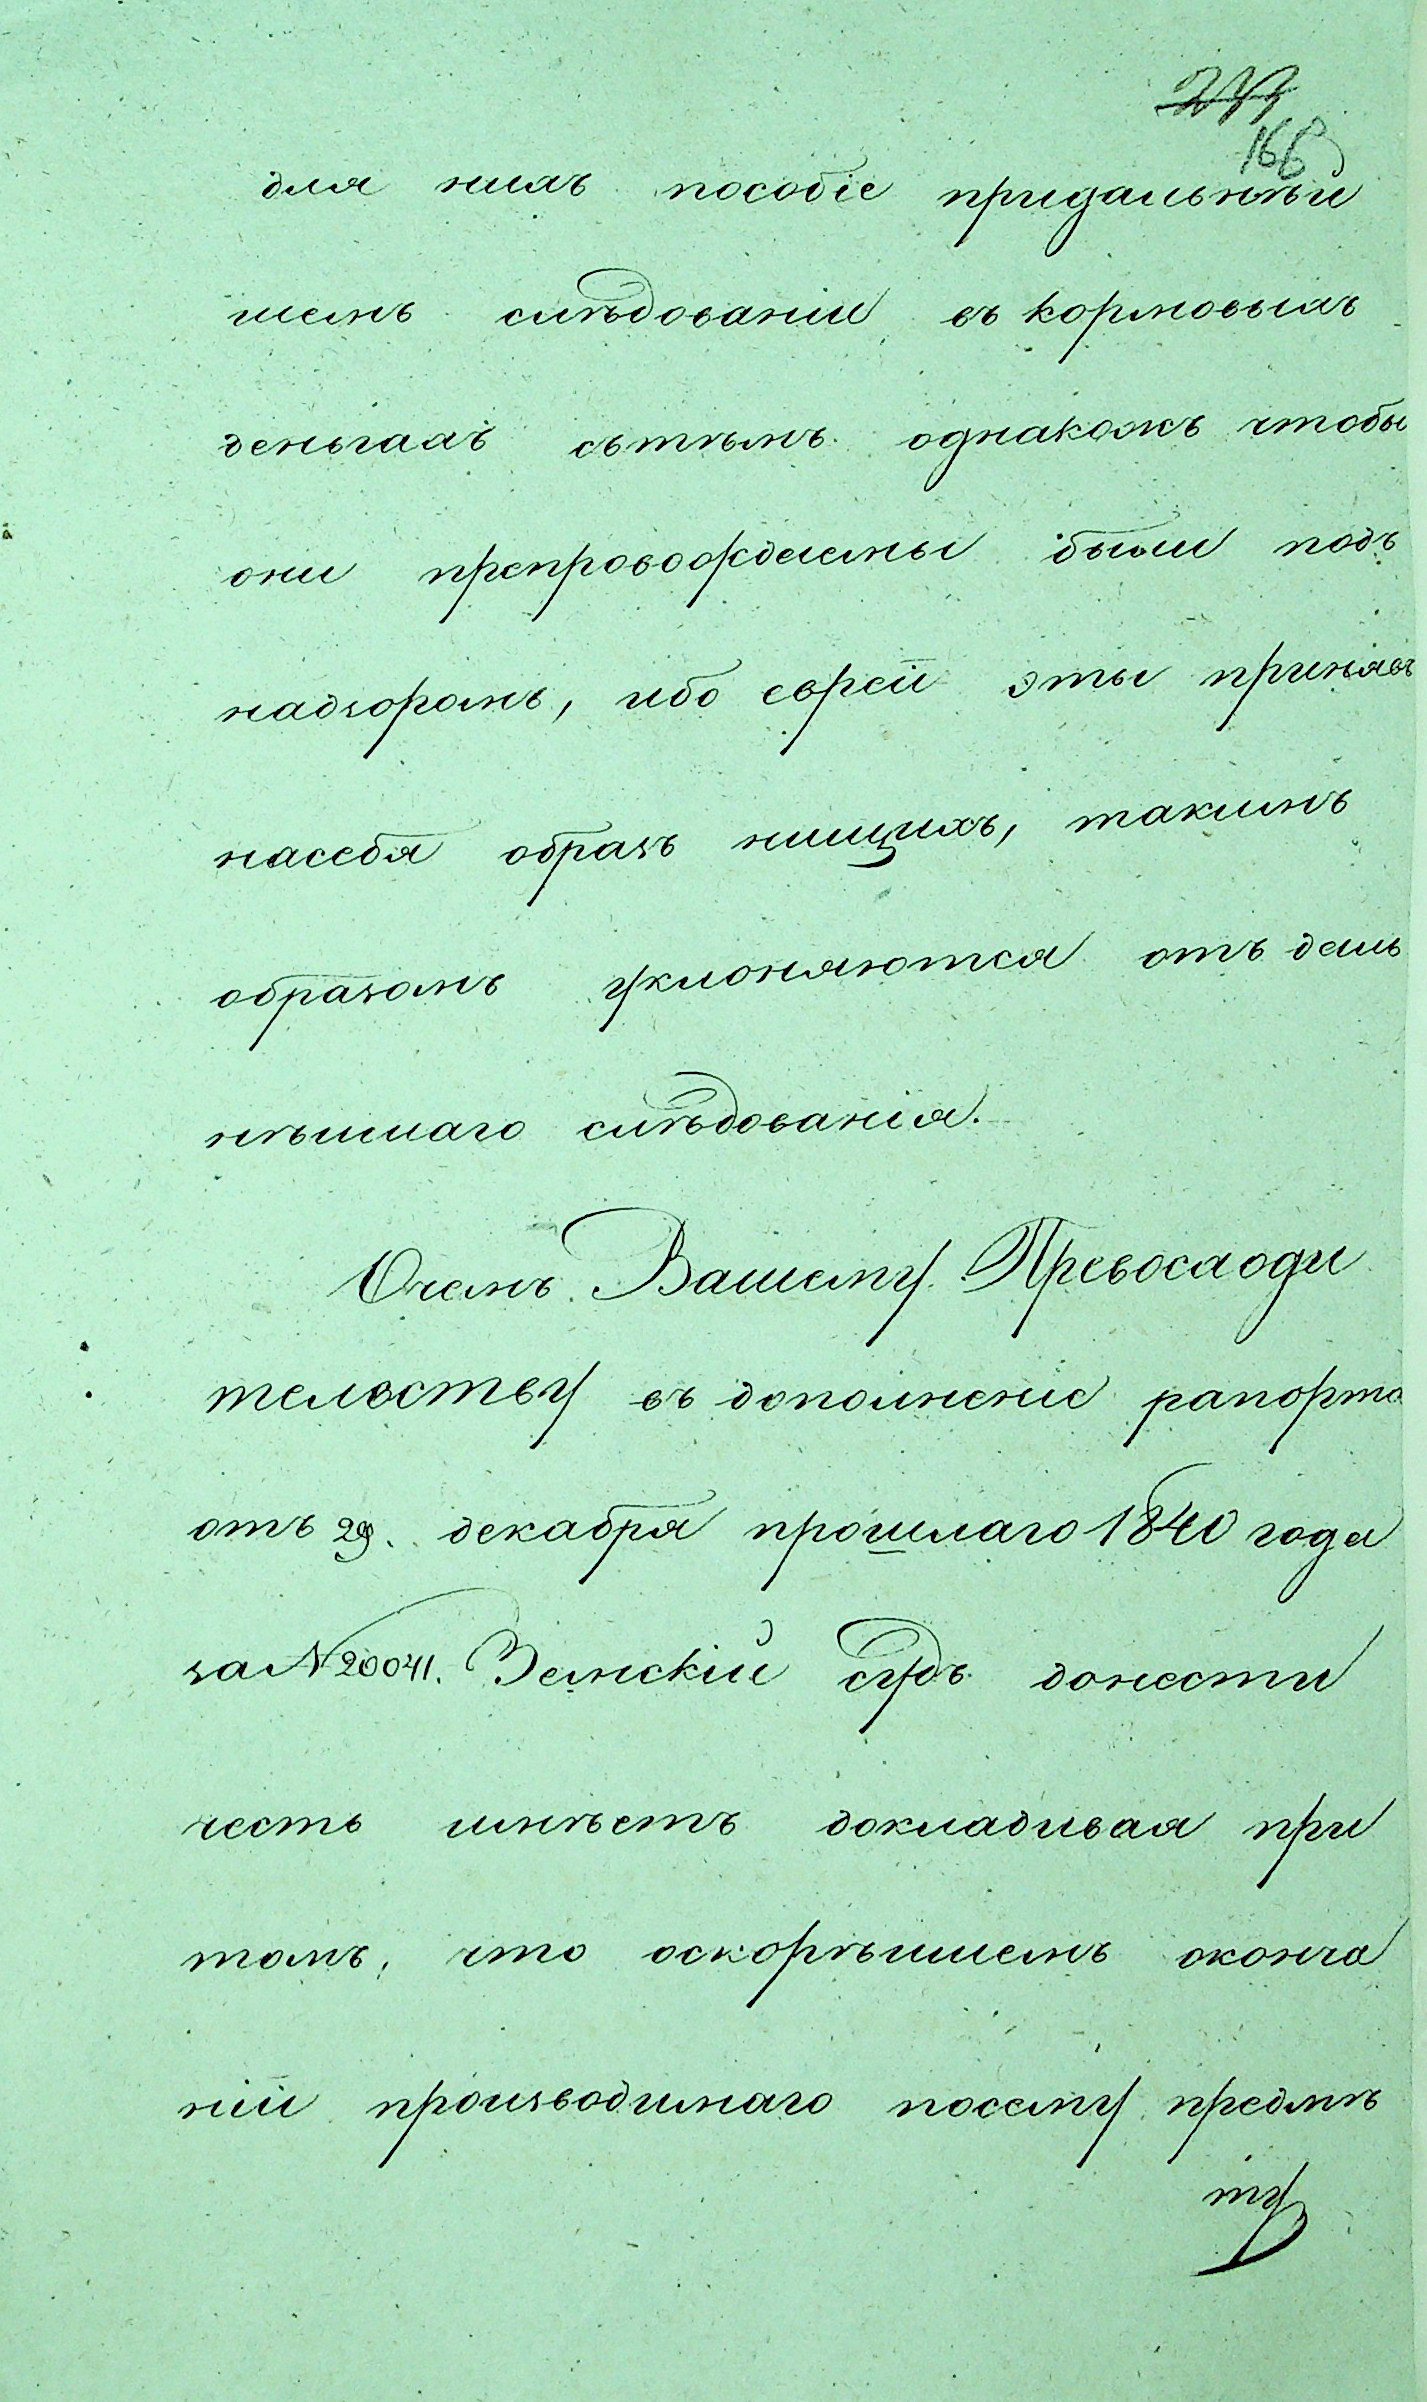 166
для нихъ пособіе придальнѣй
шемъ слѣдованіи въ кормовыхъ
деньгахъ сътѣмъ однакожъ чтобы
они препровождаемы были подъ
надзоромъ, ибо евреи эты принявъ
насебя образъ нищихъ, такимъ
образомъ уклоняются отъ даль
нѣшшаго слѣдованія.
Очемъ Вашему Превосходи
тельству въ дополненіе рапорта
отъ 29. декабря прошлаго 1840 года
за N 20041. Земскій судъ донести
честь имѣетъ докладивая при
томъ, что оскорѣйшемъ оконча
ніи производимаго посему предмѣ
ту